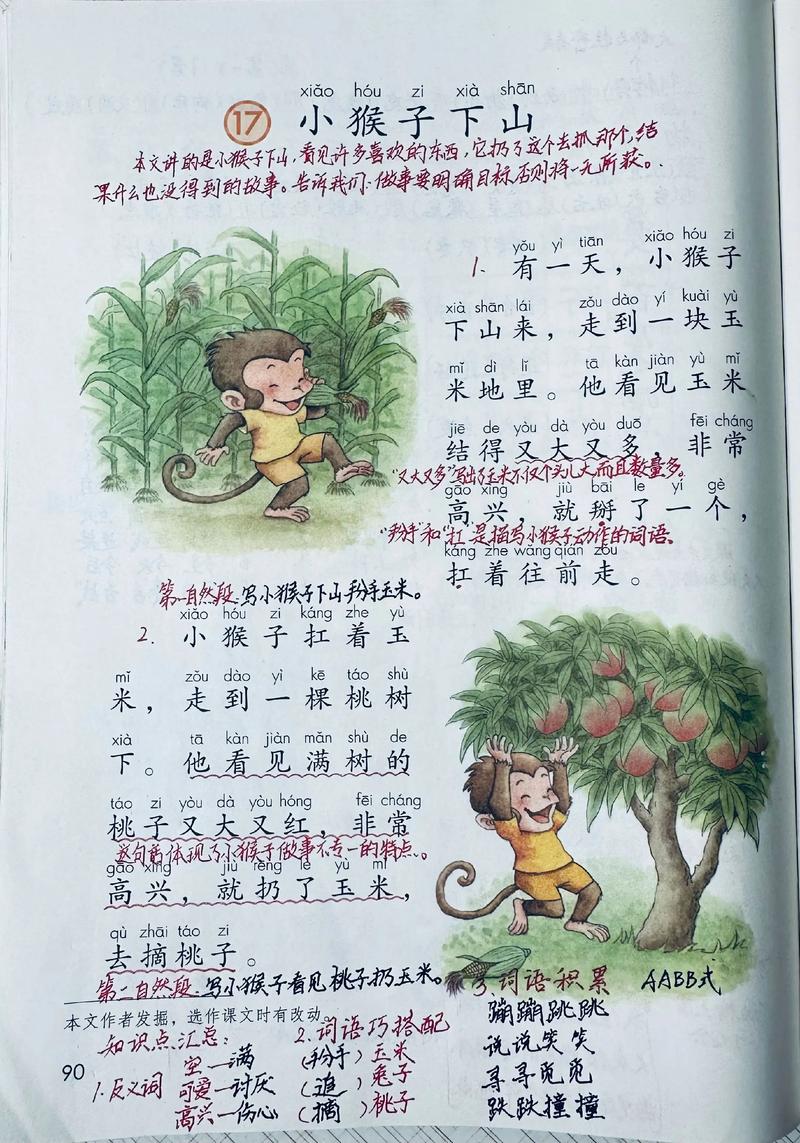 xiǎo hóu zi xià shān
17 小猴子下山
本文讲的是小猴子下山，看见许多喜欢的东西，它扔了这个去抓那个，结
果什么也没得到的故事。告诉我们：做事要明确目标，否则将一无所获。
yǒu yì tiān xiǎo hóu zi
1. 有一天，小猴子
xià shān lái zǒu dào yí kuài yù
下山来，走到一块玉
mǐ dì lǐ tā kàn jiàn yù mǐ
米地里。他看见玉米
jiē de yòu dà yòu duō fēi cháng
结得又大又多，非常
“又大又多”写出了玉米不仅个头儿大而且数量多。
gāo xìng jiù bāi le yí gè
高兴，就掰了一个，
“掰”和“扛”是描写小猴子动作的词语。
káng zhe wǎng qián zǒu
扛着往前走。
第一自然段：写小猴子下山掰玉米。
xiǎo hóu zi káng zhe yù
2. 小猴子扛着玉
mǐ zǒu dào yì kē táo shù
米，走到一棵桃树
xià tā kàn jiàn mǎn shù de
下。他看见满树的
táo zi yòu dà yòu hóng fēi cháng
桃子又大又红，非常
这句话体现了小猴子做事不专一的特点。
gāo xìng jiù rēng le yù mǐ
高兴，就扔了玉米，
qù zhāi táo zi
去摘桃子。
第一自然段：写小猴子看见桃子扔玉米。
本文作者发掘，选作课文时有改动。
90
知识点汇总：
1.反义词
空—满
可爱—讨厌
高兴—伤心
2.词语巧搭配
（掰）玉米
（追）兔子
（摘）桃子
3.词语积累 AABB式
蹦蹦跳跳
说说笑笑
寻寻觅觅
跌跌撞撞